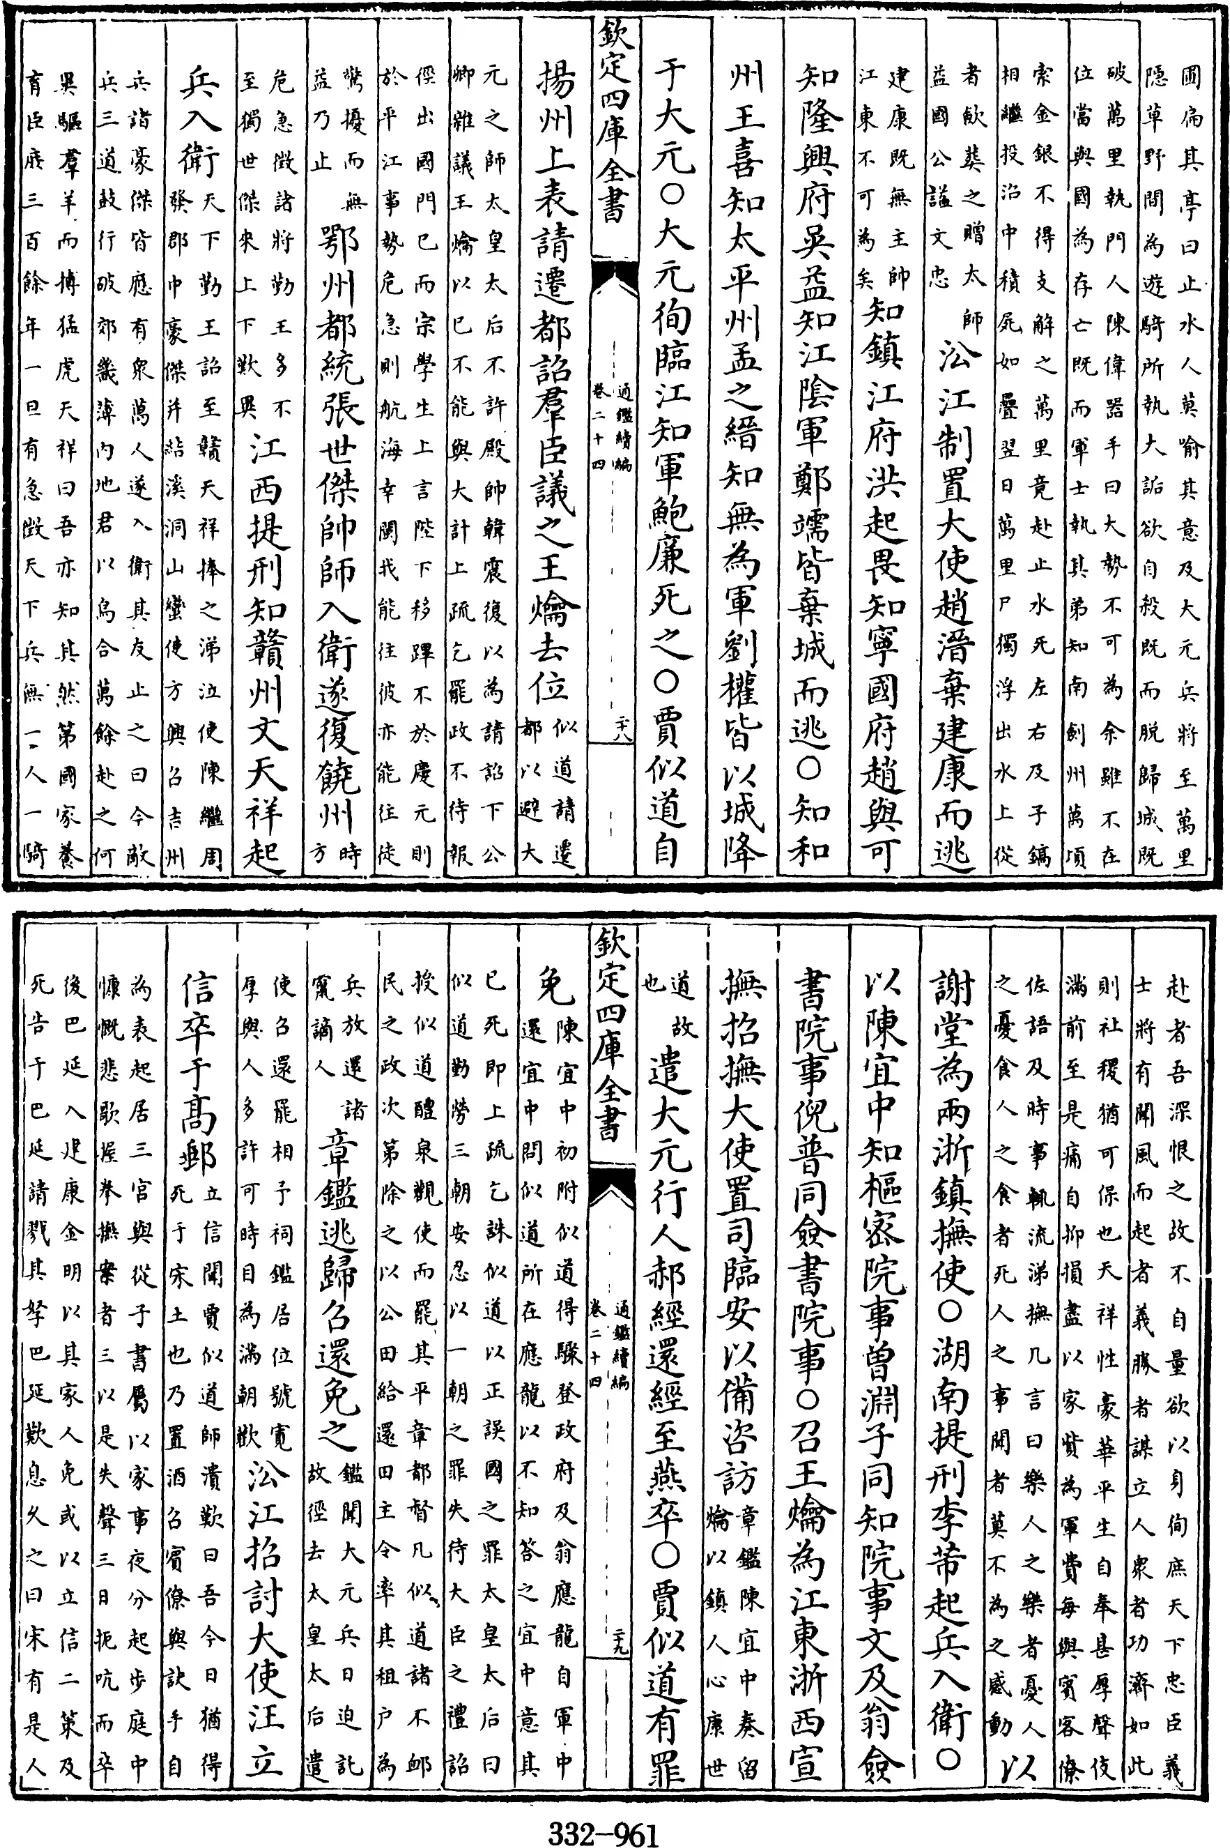 圃扁其亭曰止水人莫喻其意及大元兵將至萬里
隱草野間為遊騎所執大詬欲自殺既而脫歸城既
破萬里執門人陳偉器手曰大勢不可為余雖不在
位當與國為存亡既而軍士執其弟知南劍州萬頃
索金銀不得支解之萬里竟赴止水死左右及子鎬
相繼投沿中積屍如疊翌日萬里尸獨浮出水上從
者歛葬之贈太師
益國公諡文忠
沿江制置大使趙溍棄建康而逃
建康既無主帥
江東不可為矣
知鎮江府洪起畏知寧國府趙與可
知隆興府吳益知江陰軍鄭䎡皆棄城而逃〇知和
州王喜知太平州孟之縉知無為軍劉權皆以城降
于大元〇大元徇臨江知軍鮑廉死之〇賈似道自
欽定四庫全書
通鑑續編
卷二十四
二十八
揚州上表請遷都詔羣臣議之王爚去位
似道請遷
都以避大
元之師太皇太后不許殿帥韓震復以為請詔下公
卿雜議王爚以已不能與大計上疏乞罷政不待報
徑出國門已而宗學生上言陛下移蹕不於慶元則
於平江事勢危急則航海幸閩我能往彼亦能往徒
驚擾而無
益乃止
鄂州都統張世傑帥師入衛遂復饒州
時方
危急徵諸將勤王多不
至獨世傑來上下歎異
江西提刑知贛州文天祥起
兵入衛
天下勤王詔至贛天祥捧之涕泣使陳繼周
發郡中豪傑并結溪洞山蠻使方興召吉州
兵詣豪傑皆應有衆萬人遂入衛其友止之曰今敵
兵三道鼓行破郊畿薄內地君以烏合萬餘赴之何
異驅羣羊而搏猛虎天祥曰吾亦知其然第國家養
育臣庶三百餘年一旦有急徵天下兵無一人一騎
赴者吾深恨之故不自量欲以身徇庶天下忠臣義
士將有聞風而起者義勝者謀立人衆者功濟如此
則社稷猶可保也天祥性豪華平生自奉甚厚聲伎
滿前至是痛自抑損盡以家貲為軍費每與賓客僚
佐語及時事輒流涕撫几言曰樂人之樂者憂人
之憂食人之食者死人之事聞者莫不為之感動
以
謝堂為兩浙鎮撫使〇湖南提刑李芾起兵入衛〇
以陳宜中知樞密院事曾淵子同知院事文及翁僉
書院事倪普同僉書院事〇召王爚為江東浙西宣
撫招撫大使置司臨安以備咨訪
章鑑陳宜中奏留
爚以鎮人心康世
道故
也
遣大元行人郝經還經至燕卒〇賈似道有罪
欽定四庫全書
通鑑續編
卷二十四
二十九
免
陳宜中初附似道得驟登政府及翁應龍自軍中
還宜中問似道所在應龍以不知答之宜中意其
已死即上疏乞誅似道以正誤國之罪太皇太后曰
似道勤勞三朝安忍以一朝之罪失待大臣之禮詔
授似道醴泉觀使而罷其平章都督凡似道諸不卹
民之政次第除之以公田給還田主令率其租户為
兵放還諸
竄謫人
章鑑逃歸召還免之
鑑聞大元兵日迫託
故徑去太皇太后遣
使召還罷相予祠鑑居位號寬
厚與人多許可時目為滿朝歡
沿江招討大使汪立
信卒于高郵
立信聞賈似道師潰歎曰吾今日猶得
死于宋土也乃置酒召賓僚與訣手自
為表起居三宮與從子書屬以家事夜分起步庭中
慷慨悲歌握拳撫案者三以是失聲三日扼吭而卒
後巴延入建康金明以其家人免或以立信二策及
死告于巴延請戮其孥巴延歎息久之曰宋有是人
332-961